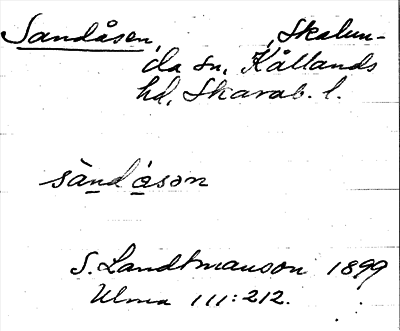 Sandåsen, Skalun-
da sn, Kållands
hd, Skarab. l.
sàndåsən
S. Landtmanson 1899
Ulma 111:212.